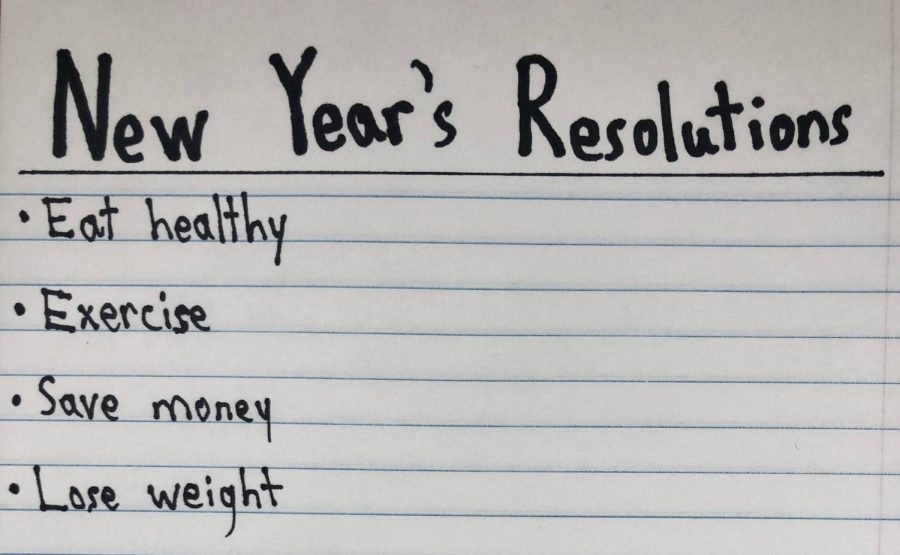 New Year's Resolutions
• Eat healthy
• Exercise
• Save money
• Lose weight